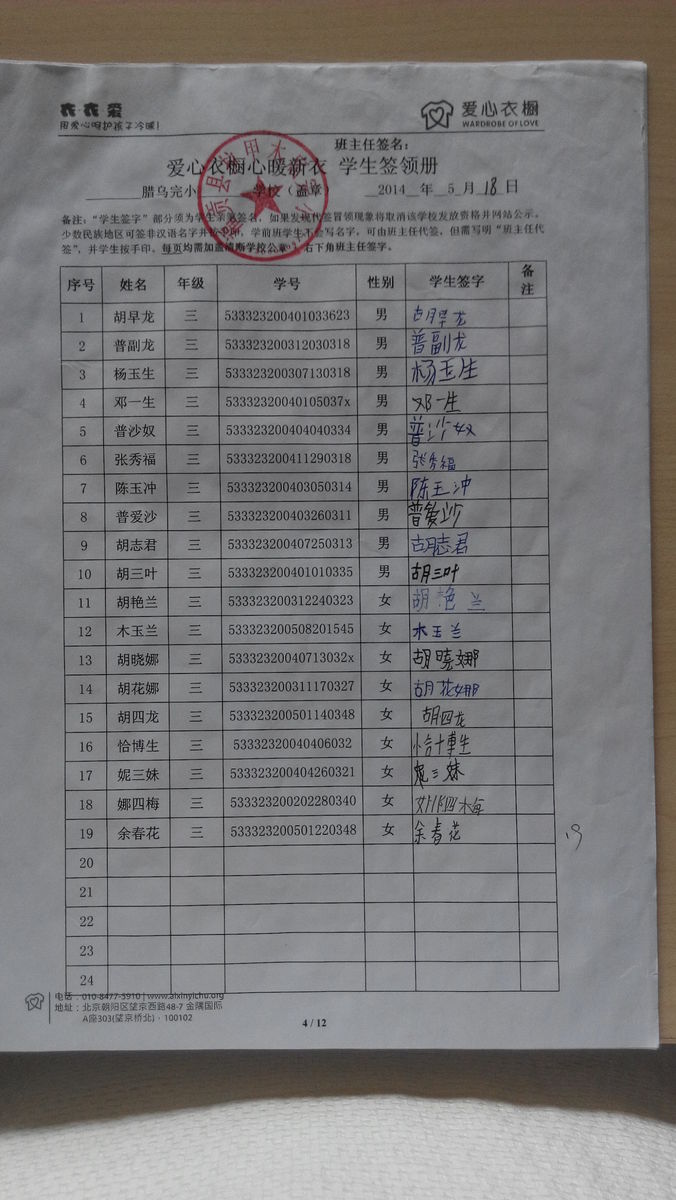 衣·衣·爱
用爱心呵护孩子冷暖!
爱心衣橱
WARDROBE OF LOVE
班主任签名:
爱心衣橱心暖新衣 学生签领册
腊乌完小 学校(盖章) 2014 年 5 月 18 日
备注:“学生签字”部分须为学生亲笔签名,如果发现代签冒领现象将取消该学校发放资格并网站公示。
少数民族地区可签非汉语名字并按手印,学前班学生不会写名字,可由班主任代签,但需写明“班主任代
签”,并学生按手印。每页均需加盖清晰学校公章,右下角班主任签字。
序号 姓名 年级 学号 性别 学生签字 备注
1 胡早龙 三 533323200401033623 男 胡早龙
2 普副龙 三 533323200312030318 男 普副龙
3 杨玉生 三 533323200307130318 男 杨玉生
4 邓一生 三 53332320040105037x 男 邓一生
5 普沙奴 三 533323200404040334 男 普沙奴
6 张秀福 三 533323200411290318 男 张秀福
7 陈玉冲 三 533323200403050314 男 陈玉冲
8 普爱沙 三 533323200403260311 男 普爱沙
9 胡志君 三 533323200407250313 男 胡志君
10 胡三叶 三 533323200401010335 男 胡三叶
11 胡艳兰 三 533323200312240323 女 胡艳兰
12 木玉兰 三 533323200508201545 女 木玉兰
13 胡晓娜 三 53332320040713032x 女 胡晓娜
14 胡花娜 三 533323200311170327 女 胡花娜
15 胡四龙 三 533323200501140348 女 胡四龙
16 恰博生 三 53332320040406032 女 恰博生
17 妮三妹 三 533323200404260321 女 妮三妹
18 娜四梅 三 533323200202280340 女 娜四梅
19 余春花 三 533323200501220348 女 余春花
19
20
21
22
23
24
电话:010-8477-3910 | www.aixinyichu.org
地址:北京朝阳区望京西路48-7 金隅国际
A座303(望京桥北)·100102
4 / 12